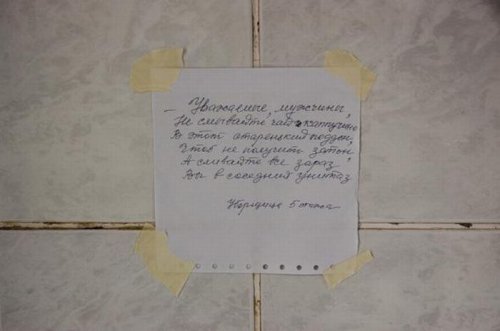 – Уважаемые мужчины,
Не смывайте чай капучино
В этот старенький поддон,
Чтоб не получить затон,
А сливайте все зараз
Вы в соседний унитаз
Уборщица 5 этажа